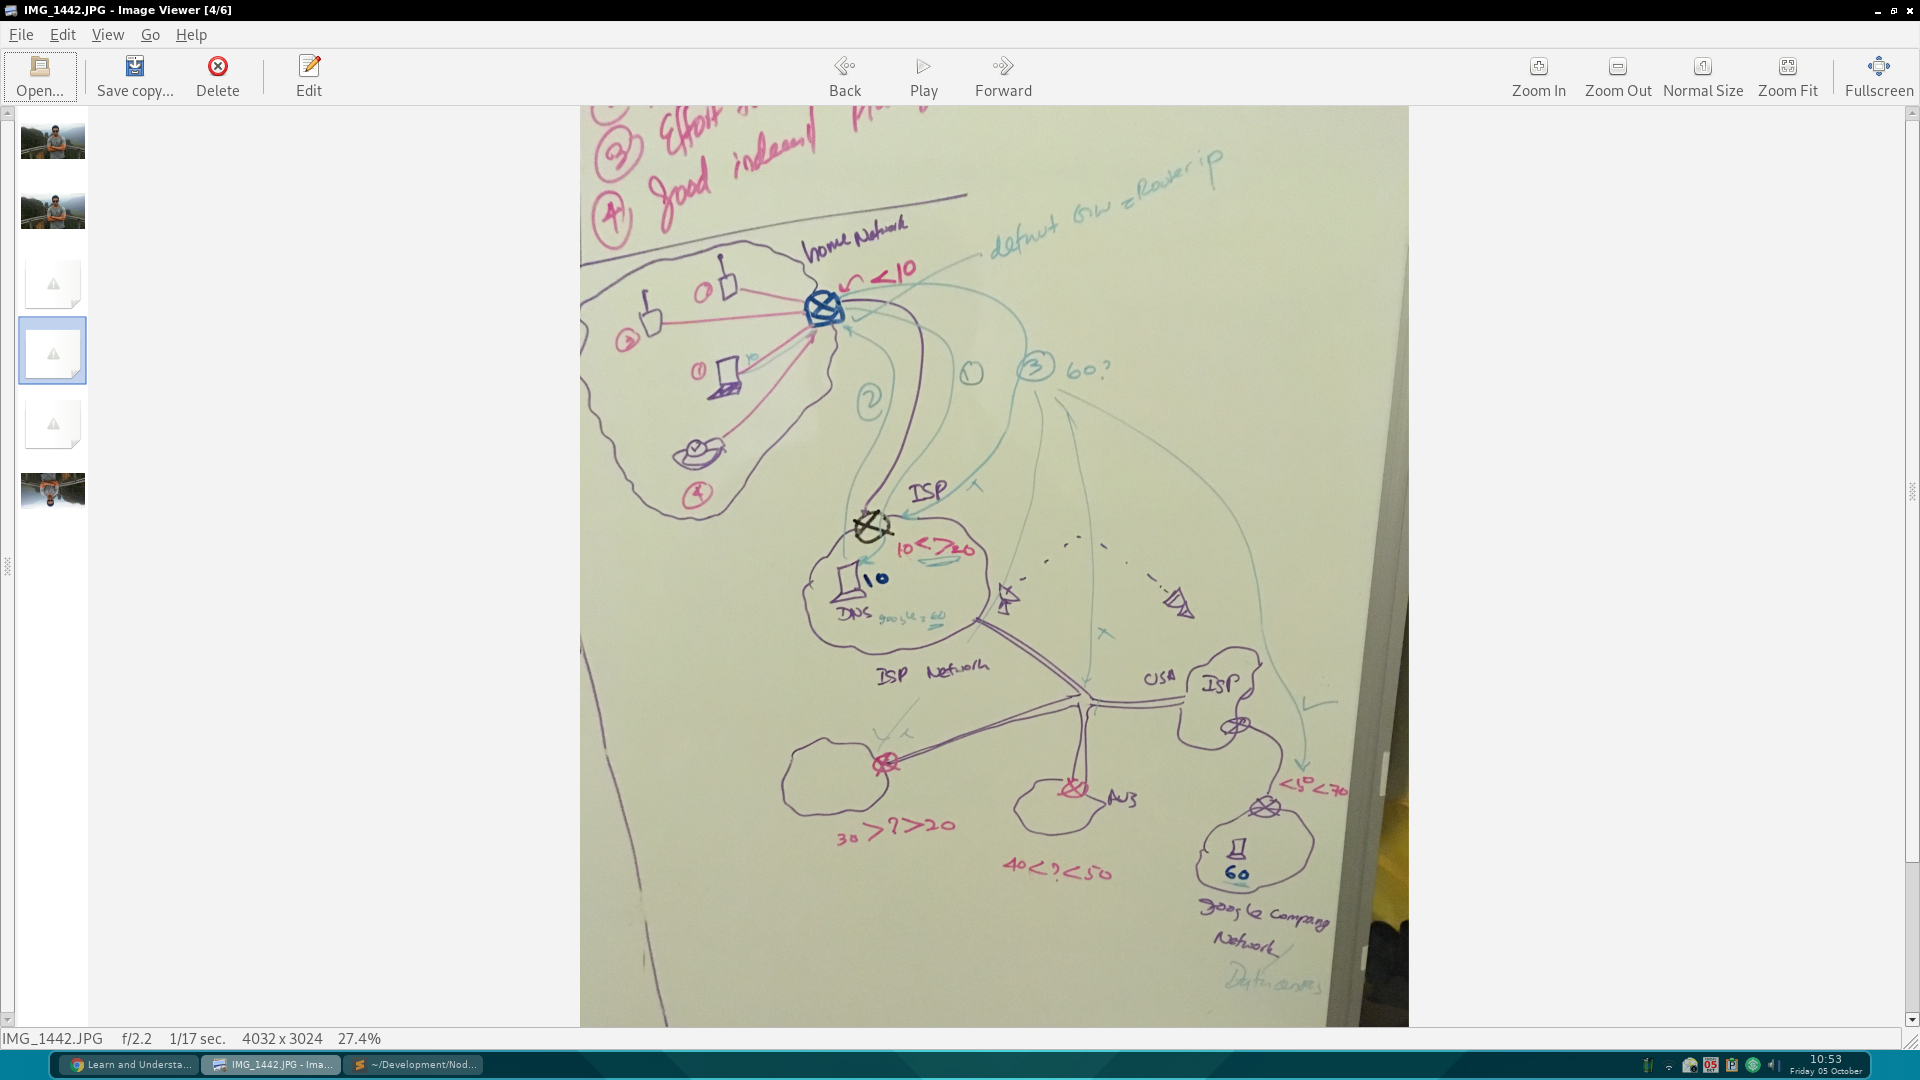 IMG_1442.JPG - Image Viewer [4/6]
File Edit View Go Help
Open... Save copy... Delete Edit Back Play Forward Zoom In Zoom Out Normal Size Zoom Fit Fullscreen
3 Effort
4 good
Router ip
home Network
<10
1
2
10
1
4
2
1
3 60?
ISP
10<>20
10
DNS google = 60
ISP Network
USA
ISP
30>?>20
AUS
40<?<50
<70
60
google Company
Network
IMG_1442.JPG f/2.2 1/17 sec. 4032 x 3024 27.4%
Learn and Understa... IMG_1442.JPG - Ima... ~/Development/Nod...
05
10:53
Friday 05 October